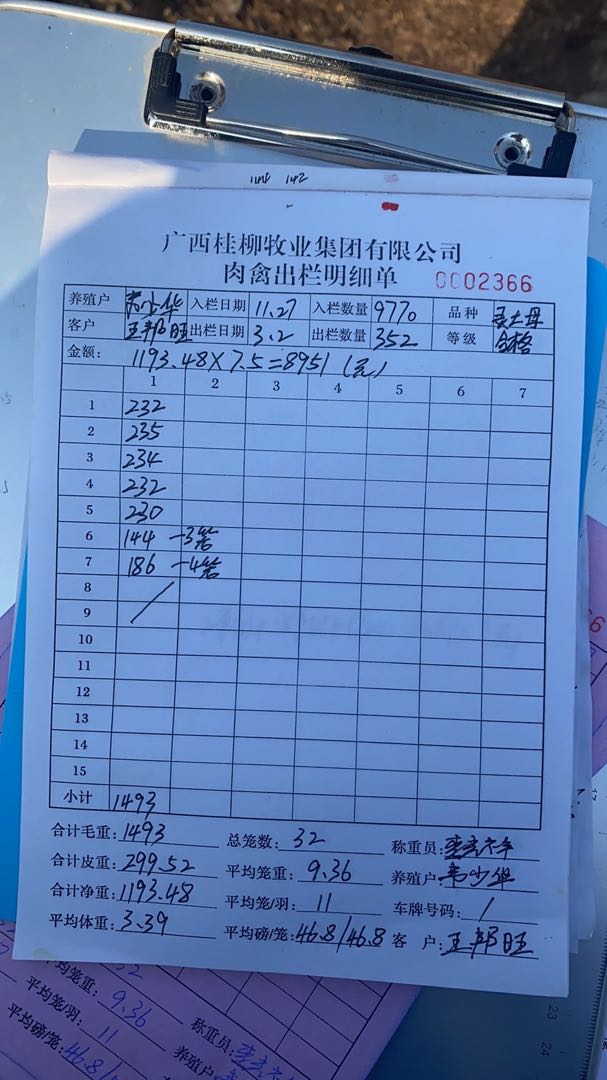 广西桂柳牧业集团有限公司
肉禽出栏明细单 0002366
养殖户 韦少华 入栏日期 11.27 入栏数量 9770 品种
客户 王邦旺 出栏日期 3.2 出栏数量 352 等级 合格
金额: 1193.48×7.5=8951 (元)
1 2 3 4 5 6 7
1 232
2 235
3 234
4 232
5 230
6 144 -3笼
7 186 -4笼
8
9
10
11
12
13
14
15
小计 1493
合计毛重: 1493 总笼数: 32 称重员:
合计皮重: 299.52 平均笼重: 9.36 养殖户: 韦少华
合计净重: 1193.48 平均笼/羽: 11 车牌号码: /
平均体重: 3.39 平均磅/笼: 46.8/46.8 客 户: 王邦旺
32
平均笼重: 9.36 称重员:
平均笼/羽: 11 养殖户:
平均磅/笼: 46.8/
23
24